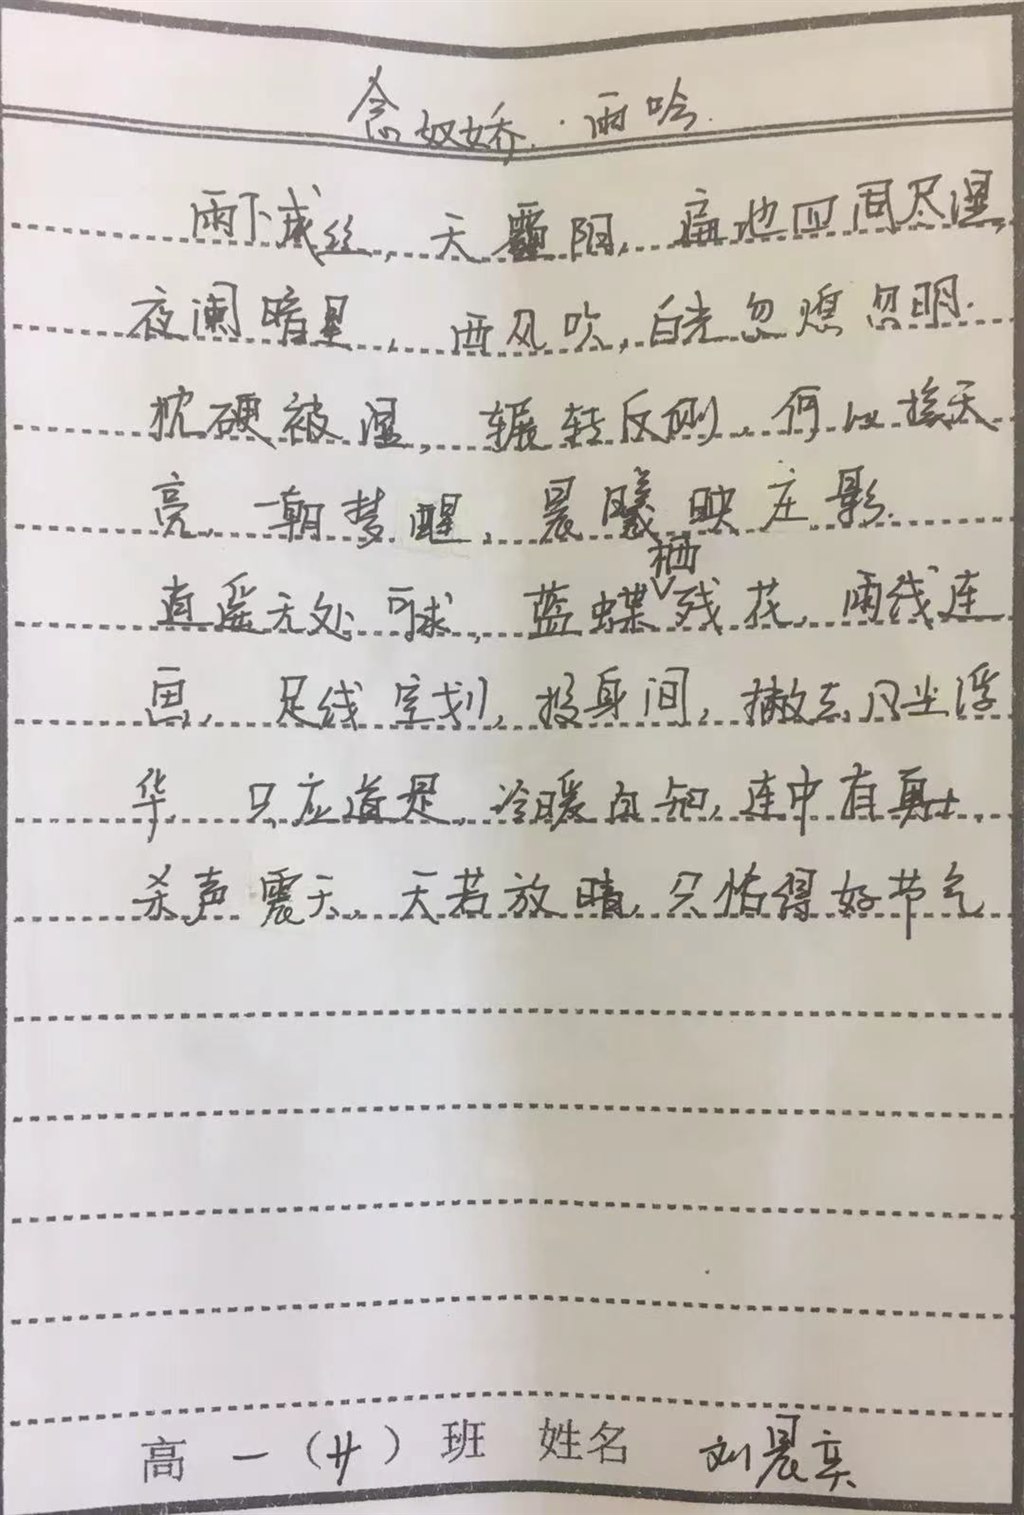 念奴娇·雨吟
雨下成丝,天霾阴,扁地四周尽湿,
夜阑暗星,西风吹,白光忽熄忽明.
枕硬被湿,辗转反侧,何以接天
亮,一朝梦醒,晨曦映庄影.
直遥无处可求,蓝蝶栖残花,雨线连
思,足线室划,投身间,撇去风尘浮
华,只应道是,冷暖自知,连中有勇士,
杀声震天,天若放晴,只怕得好节气
高一(廿)班 姓名 刘晨奕